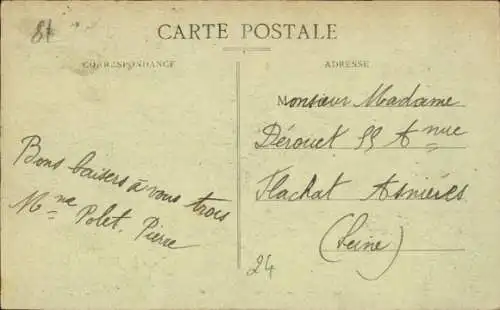 81
CARTE POSTALE
CORRESPONDANCE
ADRESSE
Monsieur Madame
Dérouet 55 Anue
Flachat Asnières
(Seine)
Bons baisers à vous trois
Mme Polet. Pierre
24